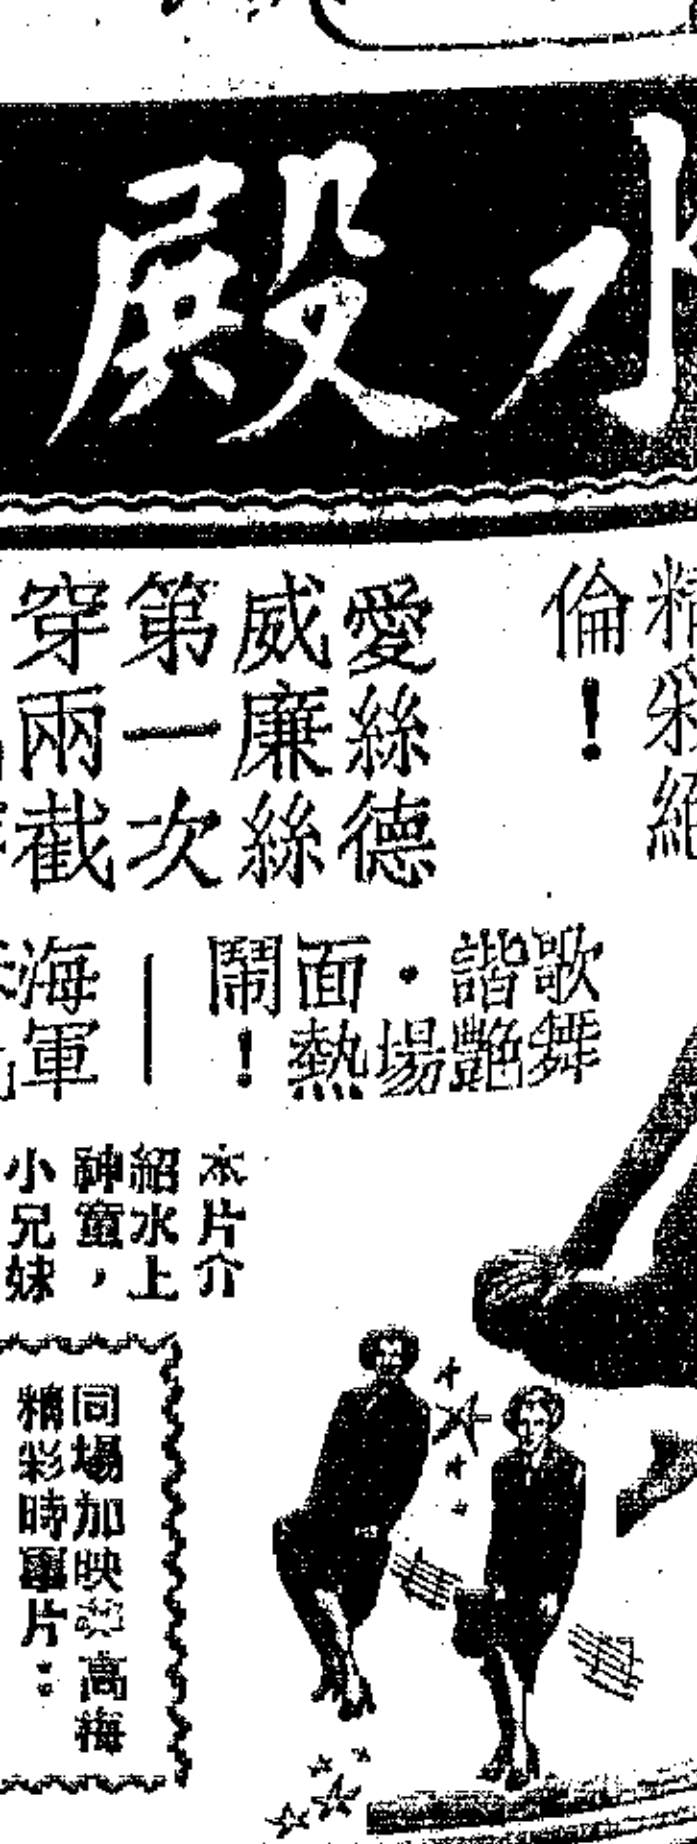 水殿
精彩絕
倫！
愛絲德
威廉絲
第一次
穿兩截
歌舞
諧艷
・場
面熱
鬧！
—
海軍
本片介
紹水上
神童，
小兄妹
同場加映
高梅
精彩時事片：